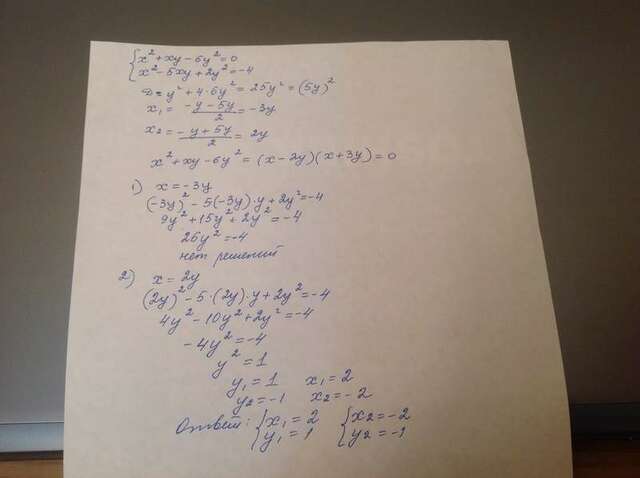 { x² + xy - 6y² = 0
x² - 5xy + 2y² = -4
D = y² + 4·6y² = 25y² = (5y)²
x₁ = (-y - 5y)/2 = -3y
x₂ = (-y + 5y)/2 = 2y
x² + xy - 6y² = (x - 2y)(x + 3y) = 0
1) x = -3y
(-3y)² - 5(-3y)·y + 2y² = -4
9y² + 15y² + 2y² = -4
26y² = -4
нет решений
2) x = 2y
(2y)² - 5·(2y)·y + 2y² = -4
4y² - 10y² + 2y² = -4
-4y² = -4
y² = 1
y₁ = 1 x₁ = 2
y₂ = -1 x₂ = -2
Ответ: { x₁ = 2 { x₂ = -2
y₁ = 1 y₂ = -1